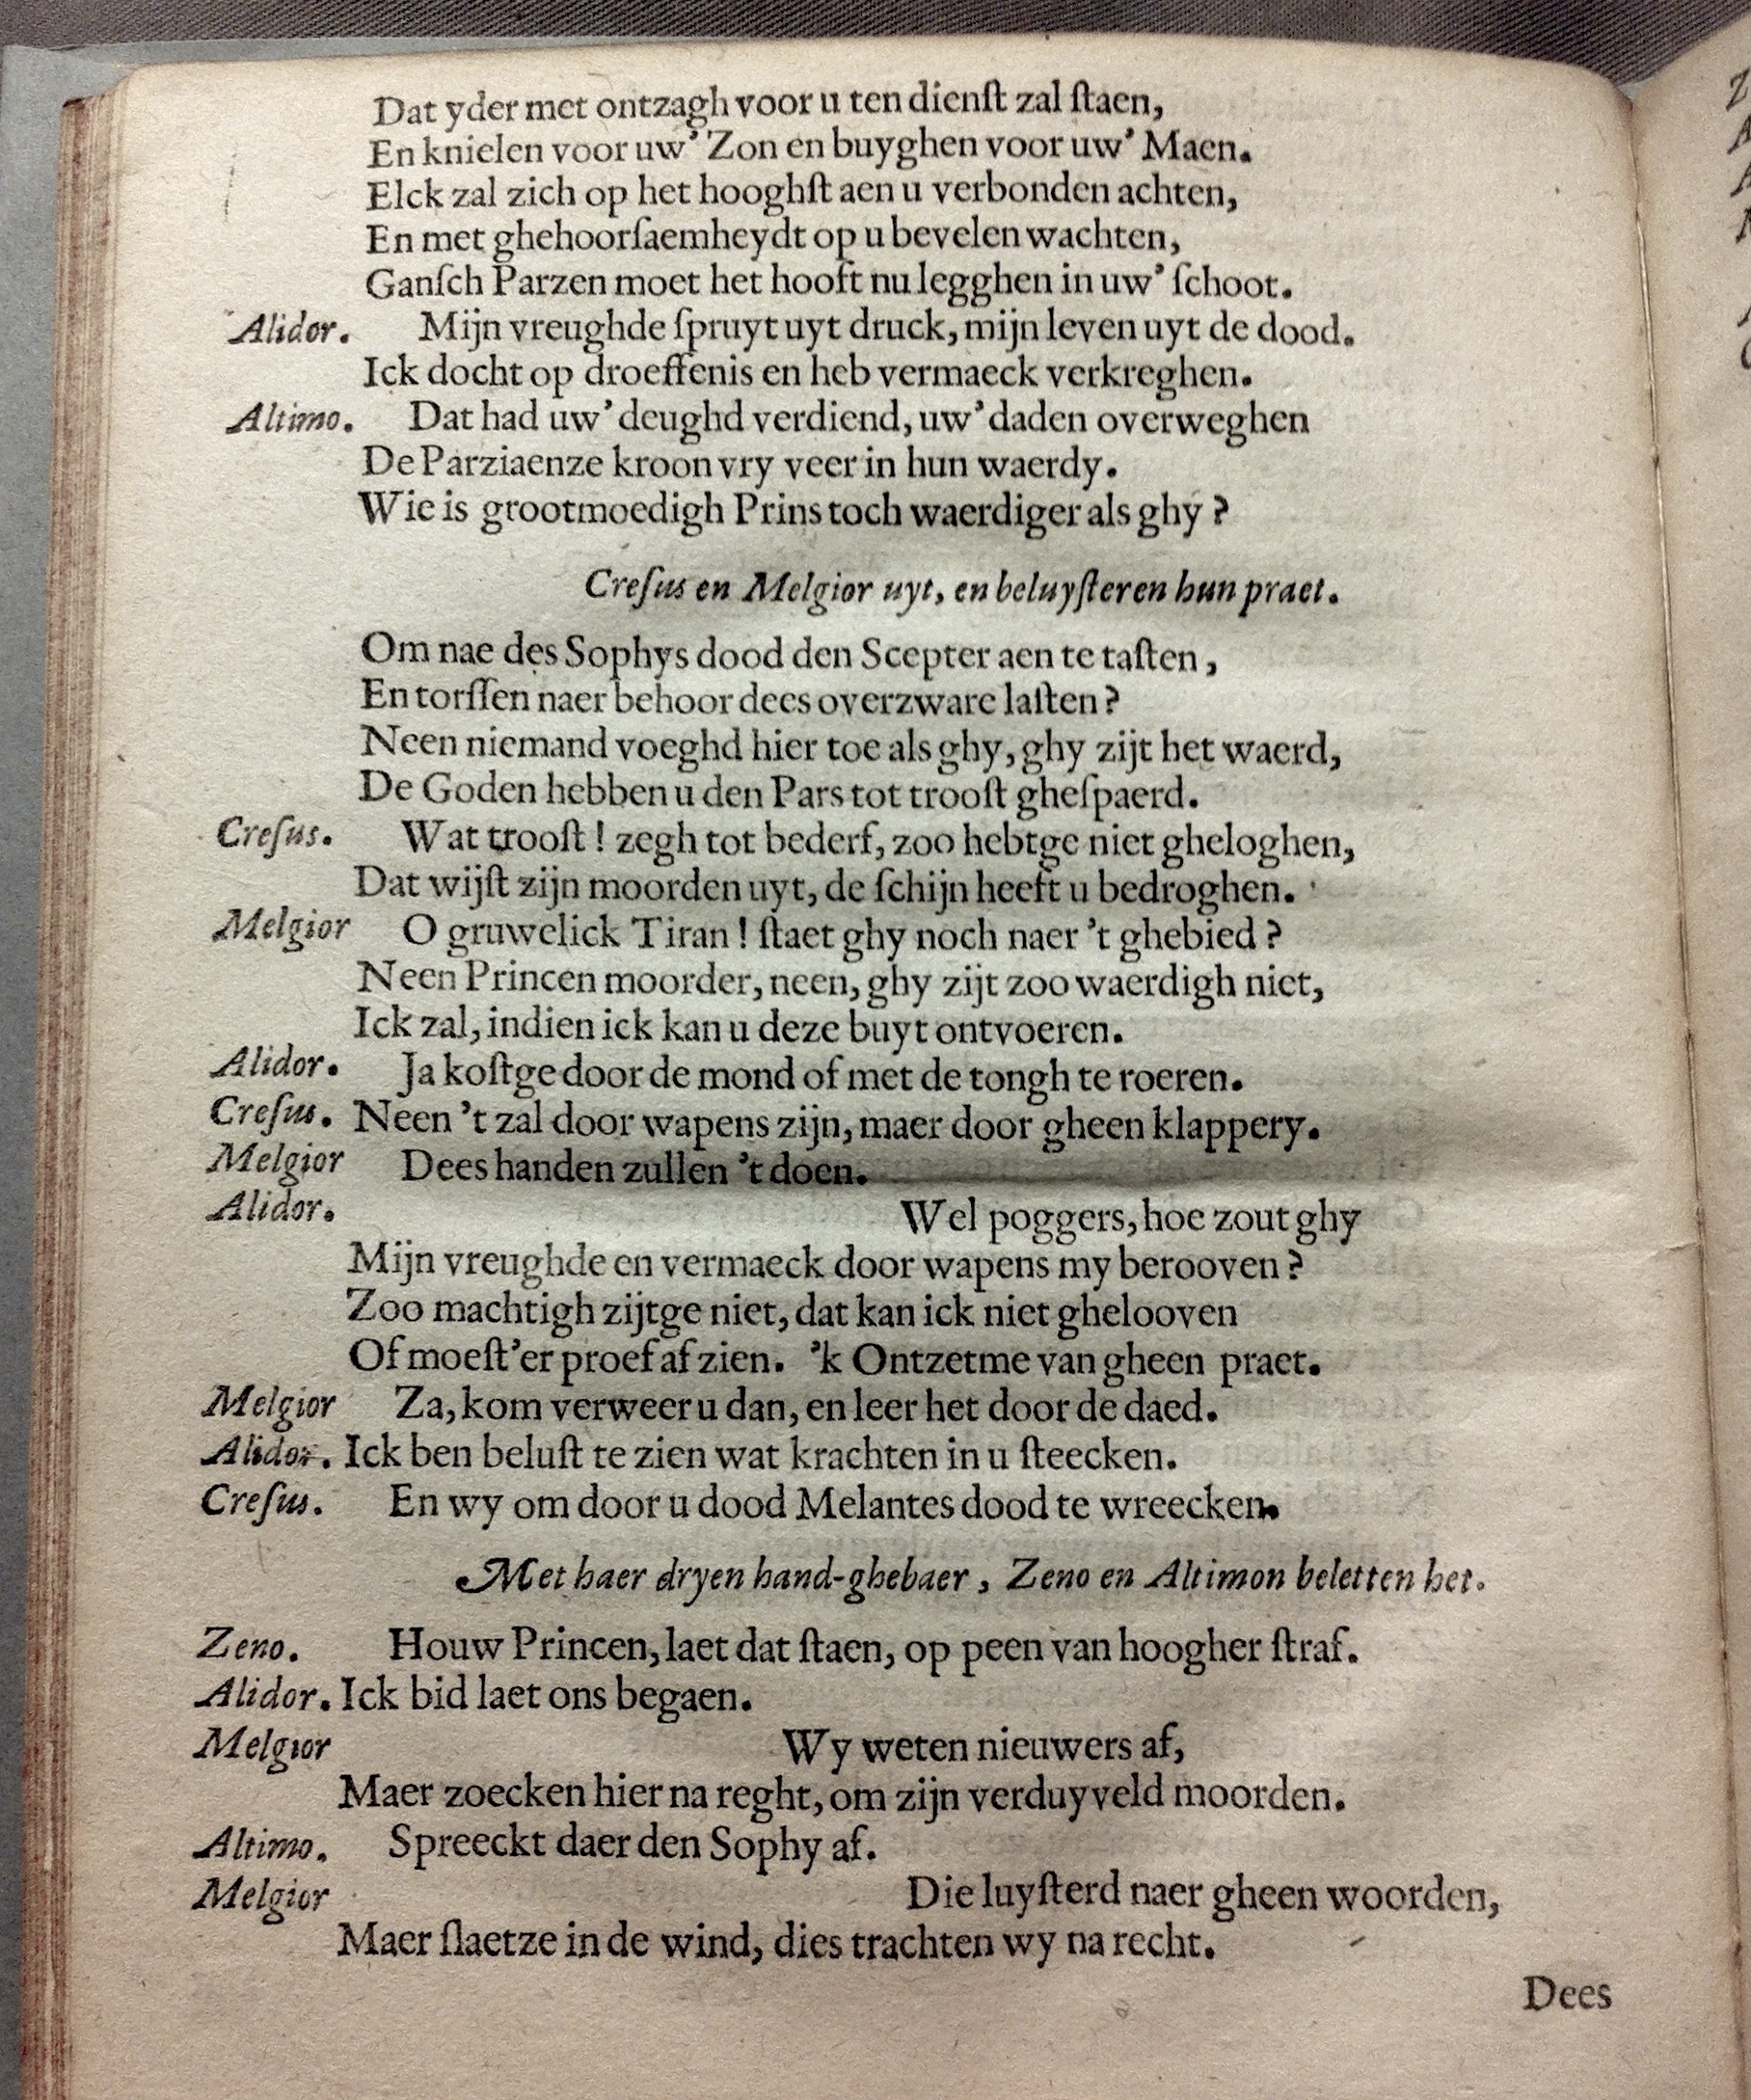 Dat yder met ontzagh voor u ten dienſt zal ſtaen,
En knielen voor uw’ Zon en buyghen voor uw’ Maen.
Elck zal zich op het hooghſt aen u verbonden achten,
En met ghehoorſaemheydt op u bevelen wachten,
Ganſch Parzen moet het hooft nu legghen in uw’ ſchoot.
Alidor. Mijn vreughde ſpruyt uyt druck, mijn leven uyt de dood.
Ick docht op droeffenis en heb vermaeck verkreghen.
Altimo. Dat had uw’ deughd verdiend, uw’ daden overweghen
De Parziaenze kroon vry veer in hun waerdy.
Wie is grootmoedigh Prins toch waerdiger als ghy?
Creſus en Melgior uyt, en beluyſteren hun praet.
Om nae des Sophys dood den Scepter aen te taſten,
En torſſen naer behoor dees overzware laſten?
Neen niemand voeghd hier toe als ghy, ghy zijt het waerd,
De Goden hebben u den Pars tot trooſt gheſpaerd.
Creſus. Wat trooſt! zegh tot bederf, zoo hebtge niet gheloghen,
Dat wijſt zijn moorden uyt, de ſchijn heeft u bedroghen.
Melgior O gruwelick Tiran! ſtaet ghy noch naer ’t ghebied?
Neen Princen moorder, neen, ghy zijt zoo waerdigh niet,
Ick zal, indien ick kan u deze buyt ontvoeren.
Alidor. Ja koſtge door de mond of met de tongh te roeren.
Creſus. Neen ’t zal door wapens zijn, maer door gheen klappery.
Melgior Dees handen zullen ’t doen.
Alidor. Wel poggers, hoe zout ghy
Mijn vreughde en vermaeck door wapens my berooven?
Zoo machtigh zijtge niet, dat kan ick niet ghelooven
Of moeſt’er proef af zien. ’k Ontzetme van gheen praet.
Melgior Za, kom verweer u dan, en leer het door de daed.
Alidor. Ick ben beluſt te zien wat krachten in u ſteecken.
Creſus. En wy om door u dood Melantes dood te wreecken.
Met haer dryen hand-ghebaer, Zeno en Altimon beletten het.
Zeno. Houw Princen, laet dat ſtaen, op peen van hoogher ſtraf.
Alidor. Ick bid laet ons begaen.
Melgior Wy weten nieuwers af,
Maer zoecken hier na reght, om zijn verduyveld moorden.
Altimo. Spreeckt daer den Sophy af.
Melgior Die luyſterd naer gheen woorden,
Maer ſlaetze in de wind, dies trachten wy na recht.
Dees